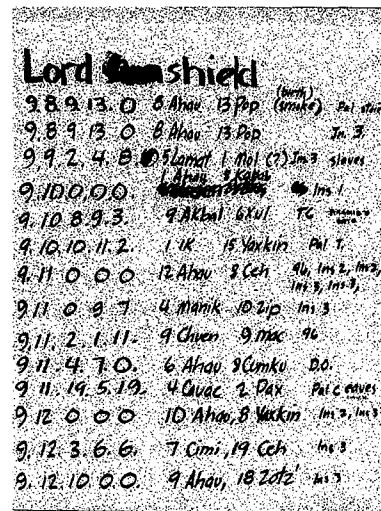 Lord shield
(birth)
9.8.9.13.0 8 Ahau 13 Pop (smoke) Pal
9.8.9.13.0 8 Ahau 13 Pop In. 3
9.9.2.4.8. 5 Lamat 1 Mol (?) Ins 3 slaves
1 Ahau 8 Kayab
9.10.0.0.0 Ins 1
9.10.8.9.3. 9 Akbal 6 Xul TC
9.10.10.11.2. 1 IK 15 Yaxkin Pal T.
9.11 0 0 0 12 Ahau 8 Ceh 96, Ins 2, Ins 3,
Ins 3, Ins 3,
9.11 0 9 7 4 Manik 10 Zip Ins 3
9.11.2.1.11. 9 Chuen 9 mac 96
9.11.4.7.0. 6 Ahau 8 Cumku D.O.
9.11.19.5.19. 4 Cauac 2 Pax Pal C eaves
9 12 0 0 0 10 Ahau, 8 Yaxkin Ins 2, Ins 3
9.12.3.6.6. 7 Cimi, 19 Ceh Ins 3
9.12.10.0.0. 9 Ahau, 18 Zotz' Ins 3